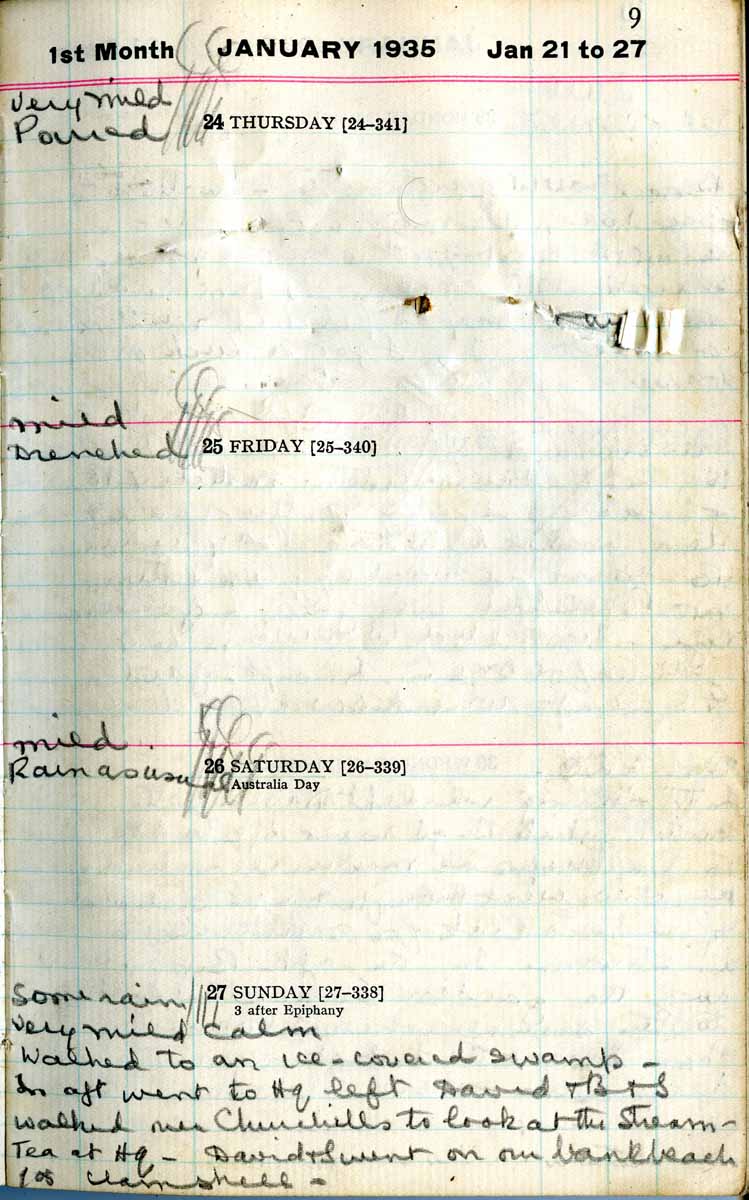 9
1st Month JANUARY 1935 Jan 21 to 27
very mild
Poured 24 THURSDAY [24–341]
mild
Drenched 25 FRIDAY [25–340]
mild.
Rain as usual 26 SATURDAY [26–339]
Australia Day
Some rain 27 SUNDAY [27–338]
3 after Epiphany
very mild calm
Walked to an ice-covered swamp –
In aft went to Hq left David + B + S
walked over Churchills to look at the Stream –
Tea at Hq – David + I went on our bank beach
for clam shells –